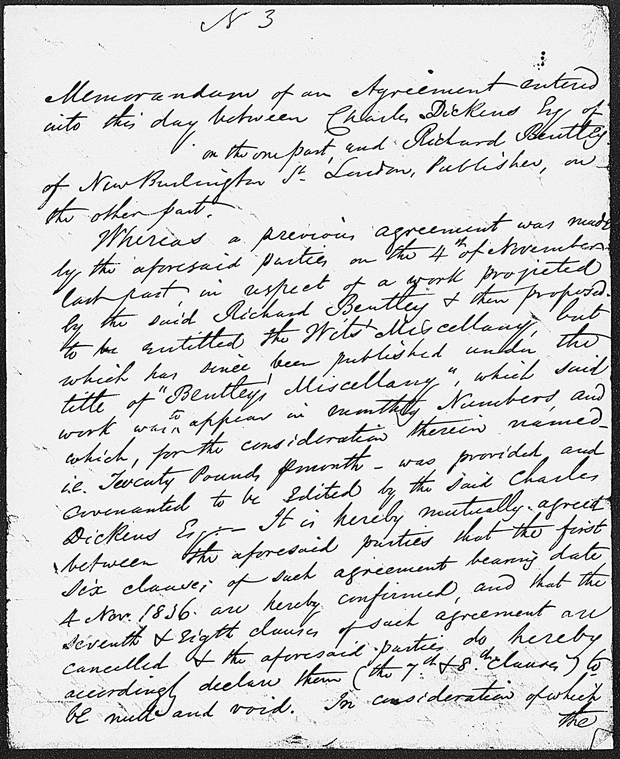 N 3
Memorandum of an Agreement entered
into this day between Charles Dickens Esq of
on the one part, and Richard Bentley
of New Burlington St. London, Publisher, on
the other part.
Whereas a previous agreement was made
by the aforesaid parties on the 4th of November
last past, in respect of a work projected
by the said Richard Bentley & then proposed
to be entitled the Wits' Miscellany, but
which has since been published under the
title of "Bentley's Miscellany", which said
work was to appear in monthly Numbers, and
which, for the consideration therein named -
i.e. Twenty Pounds pmonth - was provided and
covenanted to be Edited by the said Charles
Dickens Esq. - It is hereby mutually agreed
between the aforesaid parties that the first
six clauses of such agreement bearing date
4 Nov. 1836 are hereby confirmed, and that the
seventh & Eighth clauses of such agreement are
cancelled & the aforesaid parties do hereby
accordingly declare them (the 7th & 8th clauses) to
be null and void. In consideration of which
the